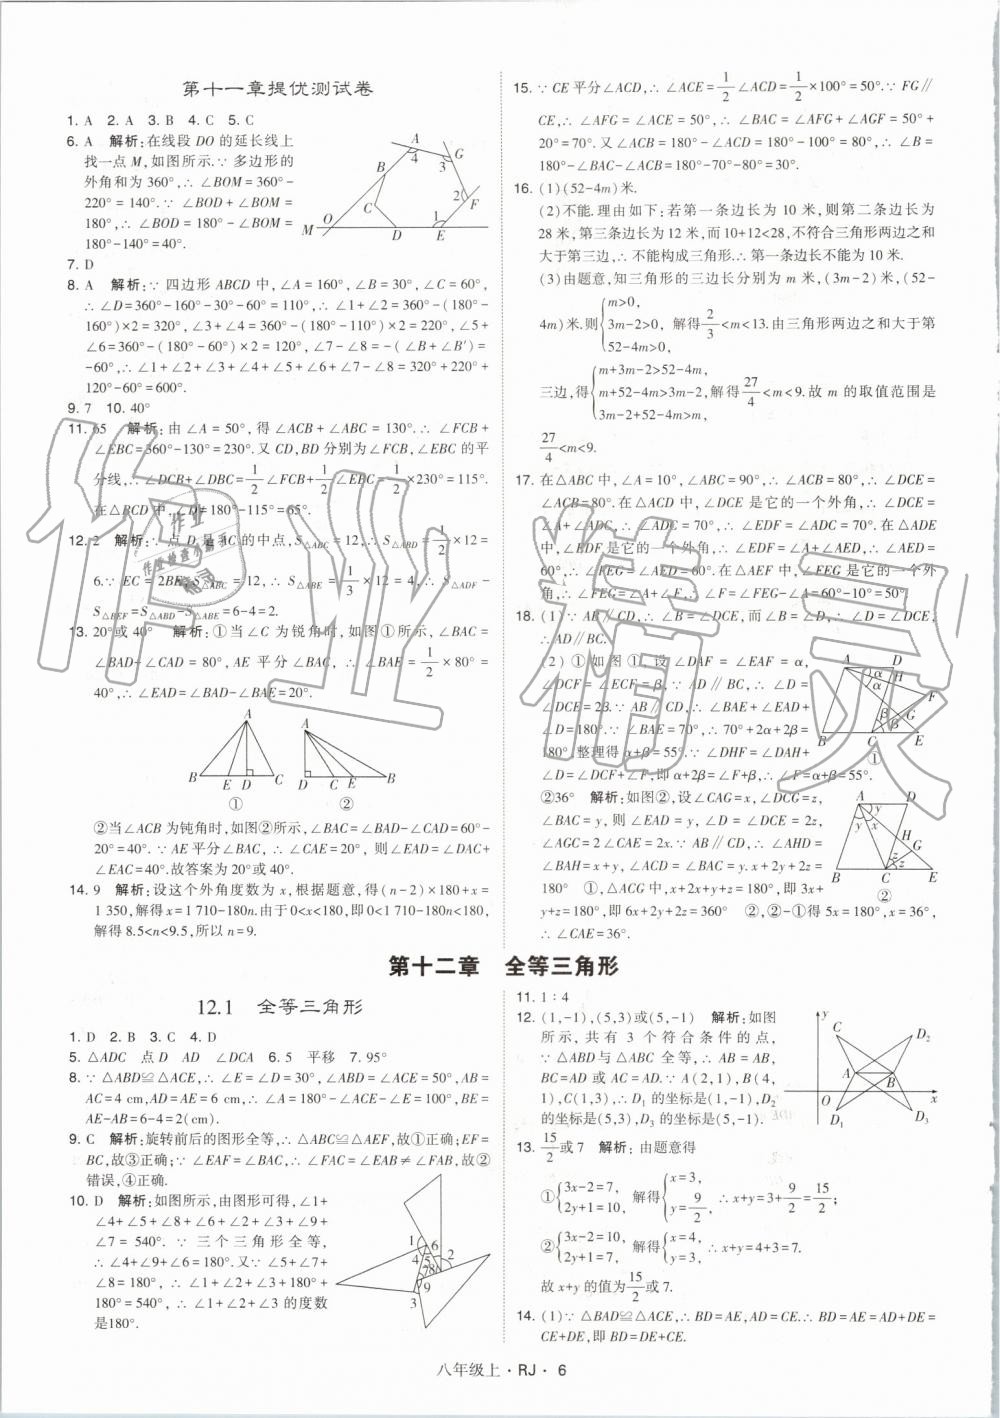 第十一章提优测试卷
1. A 2. A 3. B 4. C 5. C
6. A 解析:在线段 DO 的延长线上
找一点 M,如图所示.∵ 多边形的
外角和为 360°,∴ ∠BOM=360°-
220° = 140°.∵ ∠BOD + ∠BOM =
180°,∴ ∠BOD = 180° - ∠BOM =
180°-140°=40°.
7. D
8. A 解析:∵ 四边形 ABCD 中,∠A=160°,∠B=30°,∠C=60°,
∴ ∠D=360°-160°-30°-60°=110°,∴ ∠1+∠2=360°-(180°-
160°)×2=320°,∠3+∠4=360°-(180°-110°)×2=220°,∠5+
∠6=360°-(180°-60°)×2=120°,∠7-∠8=-(∠B+∠B′)=
-60°,∴ ∠1+∠2+∠3+∠4+∠5+∠6+∠7-∠8=320°+220°+
120°-60°=600°.
9. 7 10. 40°
11. 65 解析:由∠A=50°,得∠ACB+∠ABC=130°.∴ ∠FCB+
∠EBC=360°-130°=230°.又 CD,BD 分别为∠FCB,∠EBC 的平
分线,∴ ∠DCB+∠DBC=1/2∠FCB+1/2∠EBC=1/2×230°=115°.
在△BCD 中,∠D=180°-115°=65°.
12. 2 解析:∵ 点 D 是 AC 的中点,S△ABC=12,∴ S△ABD=1/2×12=
6.∵ EC=2BE,S△ABC=12,∴ S△ABE=1/3×12=4,∴ S△ADF-
S△BEF=S△ABD-S△ABE=6-4=2.
13. 20°或 40° 解析:①当∠C 为锐角时,如图①所示,∠BAC=
∠BAD+∠CAD=80°,AE 平分∠BAC,∴ ∠BAE=1/2×80°=
40°,∴ ∠EAD=∠BAD-∠BAE=20°.
A A
B E D C D C E B
① ②
②当∠ACB 为钝角时,如图②所示,∠BAC=∠BAD-∠CAD=60°-
20°=40°.∵ AE 平分∠BAC,∴ ∠CAE=20°,则∠EAD=∠DAC+
∠EAC=40°.故答案为 20°或 40°.
14. 9 解析:设这个外角度数为 x,根据题意,得(n-2)×180+x=
1 350,解得 x=1 710-180n.由于 0<x<180,即 0<1 710-180n<180,
解得 8.5<n<9.5,所以 n=9.
15. ∵ CE 平分∠ACD,∴ ∠ACE=1/2∠ACD=1/2×100°=50°.∵ FG∥
CE,∴ ∠AFG = ∠ACE = 50°,∴ ∠BAC = ∠AFG + ∠AGF = 50° +
20°=70°.又∠ACB=180°-∠ACD=180°-100°=80°,∴ ∠B=
180°-∠BAC-∠ACB=180°-70°-80°=30°.
16. (1)(52-4m)米.
(2)不能.理由如下:若第一条边长为 10 米,则第二条边长为
28 米,第三条边长为 12 米,而 10+12<28,不符合三角形两边之和
大于第三边,∴ 不能构成三角形.∴ 第一条边长不能为 10 米.
(3)由题意,知三角形的三边长分别为 m 米,(3m-2)米,(52-
4m)米.则{m>0, 3m-2>0, 52-4m>0, 解得2/3<m<13.由三角形两边之和大于第
三边,得{m+3m-2>52-4m, m+52-4m>3m-2, 3m-2+52-4m>m, 解得27/4<m<9.故 m 的取值范围是
27/4<m<9.
17. 在△ABC 中,∠A=10°,∠ABC=90°,∴ ∠ACB=80°,∴ ∠DCE=
∠ACB=80°.在△ACD 中,∠DCE 是它的一个外角,∴ ∠DCE=
∠A+∠ADC,∴ ∠ADC=70°,∴ ∠EDF=∠ADC=70°.在△ADE
中,∠EDF 是它的一个外角,∴ ∠EDF=∠A+∠AED,∴ ∠AED=
60°,∴ ∠FEG=∠AED=60°.在△AEF 中,∠FEG 是它的一个外
角,∴ ∠FEG=∠A+∠F,∴ ∠F=∠FEG-∠A=60°-10°=50°.
18. (1)∵ AB∥CD,∴ ∠B=∠DCE,而∠B=∠D,∴ ∠D=∠DCE,
∴ AD∥BC.
(2) ①如图①,设∠DAF = ∠EAF = α,
∠DCF = ∠ECF = β,∵ AD∥BC,∴ ∠D =
∠DCE=2β.∵ AB∥CD,∴ ∠BAE+∠EAD+
∠D=180°.∵ ∠BAE=70°,∴ 70°+2α+2β=
180°,整理得 α+β=55°.∵ ∠DHF=∠DAH+
∠D=∠DCF+∠F,即 α+2β=∠F+β,∴ ∠F=α+β=55°.
②36° 解析:如图②,设∠CAG=x,∠DCG=z,
∠BAC=y,则∠EAD=y,∠D=∠DCE=2z,
∠AGC=2∠CAE=2x.∵ AB∥CD,∴ ∠AHD=
∠BAH=x+y,∠ACD=∠BAC=y.x+2y+2z=
180° ①,△ACG 中,x+2x+y+z=180°,即 3x+
y+z=180°,即 6x+2y+2z=360° ②,②-①得 5x=180°,x=36°,
∴ ∠CAE=36°.
第十二章 全等三角形
12.1 全等三角形
1. D 2. B 3. C 4. D
5. △ADC 点 D AD ∠DCA 6. 5 平移 7. 95°
8. ∵ △ABD≌△ACE,∴ ∠E=∠D=30°,∠ABD=∠ACE=50°,AB=
AC=4 cm,AD=AE=6 cm,∴ ∠A=180°-∠ACE-∠E=100°,BE=
AE-AB=6-4=2(cm).
9. C 解析:旋转前后的图形全等,∴ △ABC≌△AEF,故①正确;EF=
BC,故③正确;∵ ∠EAF=∠BAC,∴ ∠FAC=∠EAB≠∠FAB,故②
错误,④正确.
10. D 解析:如图所示,由图形可得,∠1+
∠4+∠5+∠8+∠6+∠2+∠3+∠9+
∠7 = 540°.∵ 三个三角形全等,
∴ ∠4+∠9+∠6=180°.又∵ ∠5+∠7+
∠8=180°,∴ ∠1+∠2+∠3+180°+
180°=540°,∴ ∠1+∠2+∠3 的度数
是180°.
11. 1∶4
12. (1,-1),(5,3)或(5,-1) 解析:如图
所示,共有 3 个符合条件的点,
∵ △ABD 与△ABC 全等,∴ AB=AB,
BC=AD 或 AC=AD.∵ A(2,1),B(4,
1),C(1,3),∴ D₁ 的坐标是(1,-1),D₂
的坐标是(5,3),D₃ 的坐标是(5,-1).
13. 15/2或 7 解析:由题意得
①{3x-2=7, 2y+1=10, 解得{x=3, y=9/2, ∴ x+y=3+9/2=15/2;
②{3x-2=10, 2y+1=7, 解得{x=4, y=3, ∴ x+y=4+3=7.
故 x+y 的值为15/2或 7.
14. (1)∵ △BAD≌△ACE,∴ BD=AE,AD=CE.∴ BD=AE=AD+DE=
CE+DE,即 BD=DE+CE.
八年级上 · RJ · 6